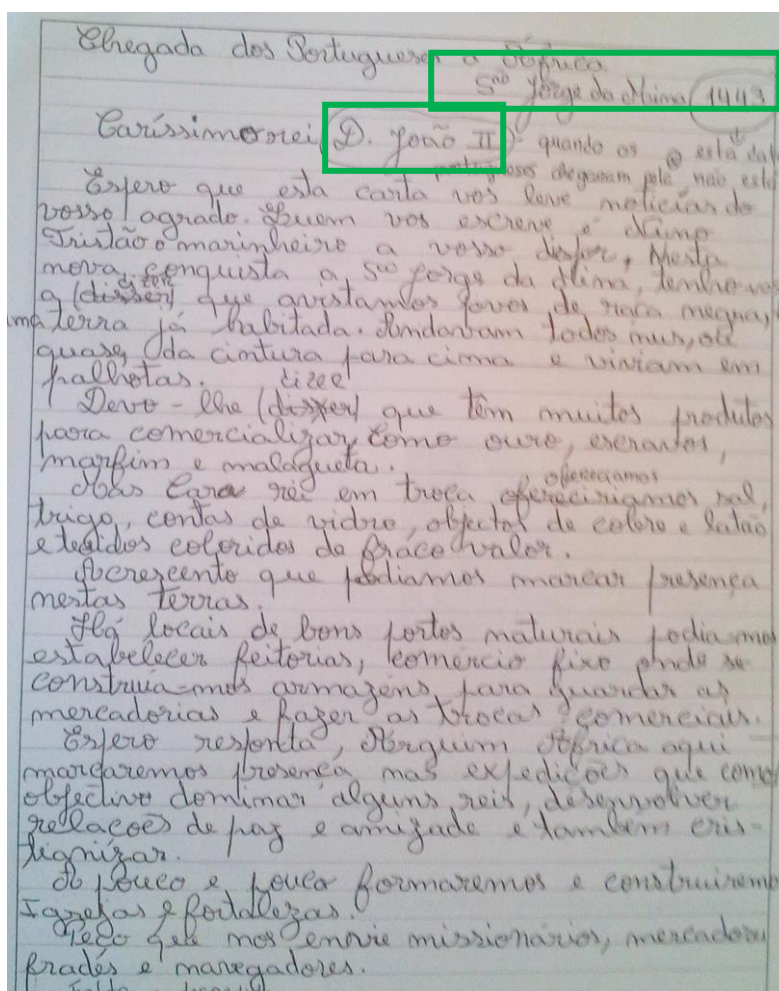 Chegada dos Portugueses a África
São Jorge da Mima 1443
Caríssimo rei, D. João II quando os @ está data
portugueses chegaram pela não está
Espero que esta carta vos leve notícias do
vosso agrado. Quem vos escreve é Nuno
Tristão o marinheiro a vosso dispor, Nesta
nova conquista a São Jorge da Mima, tenho-vos
a (disser) dizer que avistamos povos de raça negra,
uma terra já habitada. Andavam todos nus, ou
quase, da cintura para cima e viviam em
palhotas. dizer
Devo-lhe (disser) que têm muitos produtos
para comercializar, como ouro, escravos,
marfim e malagueta.
Mas Caro rei em troca ofereciriamos sal, ofereciamos
trigo, contas de vidro, objectos de cobre e latão
e tecidos coloridos de fraco valor.
Acrescento que podiamos marcar presença
nestas terras.
Há locais de bons portos naturais podia-mos
estabelecer feitorias, comércio fixo onde se
construia-mos armazéns, para guardar as
mercadorias e fazer as trocas comerciais.
Espero resposta, Arguim África aqui
marcaremos presença mas expedições que como
objectivo dominar alguns reis, desenvolver
relacoẽs de paz e amizade e também cris-
tianizar.
A pouco e pouco formaremos e construiremo
Igrejas e fortalezas.
Peço que nos envie missionários, mercadores
frades e navegadores.